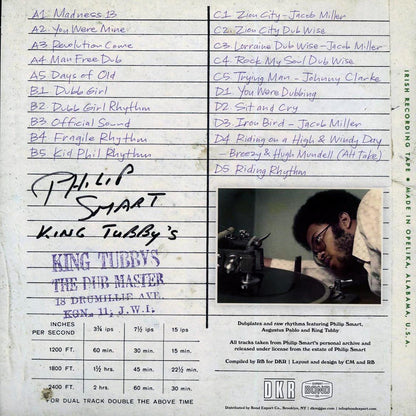 A1. Madness 13
A2. You Were Mine
A3 Revelution Come
A4 Man Free Dub
A5 Days of Old
B.1. Dubb Girl
B2. Dubb Girl Rhythm
B3 Official Sound
B4 Fragile Rhythm
B5 Kid Phil Rhythm
PHILIP
SMART
KING TUBBY'S
KING TUBBYS
THE DUB MASTER
18 DRUMILLIE AVE.
KGN. 11, J.W.I.
INCHES
PER SECOND
3¾ ips
7½ ips
15 ips
1200 FT.
60 min.
30 min.
15 min.
1800 FT.
1½ hrs.
45 min.
22½ min.
2400 FT.
2 hrs.
60 min.
30 min.
FOR DUAL TRACK DOUBLE THE ABOVE TIME
C1 Zion City - Jacob Miller
C2 Zion City Dub Wise
C3 Lorraine Dub Wise - Jacob Miller
C4. Rock My Soul Dub Wise
C5 Trying Man - Johnny Clarke
D1 You Were Dubbing
D2 Sit and Cry
D3 Iron Bird - Jacob Miller
D4 Riding on a High & Windy Day
- Breezy & Hugh Mundell (Alt Take)
D5 Riding Rhythm
Dubplates and raw rhythms featuring Philip Smart,
Augustus Pablo and King Tubby
All tracks taken from Philip Smart's personal archive and
released under license from the estate of Philip Smart
Compiled by RB for DKR | Layout and design by CM and RB
DKR
BOND
Distributed by Bond Export Co., Brooklyn, NY
IRISH RECORDING TAPE • MADE IN OPELIKA, ALABAMA, U.S.A.